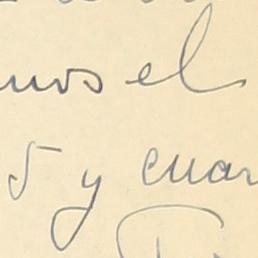 nos el
5 y cuar